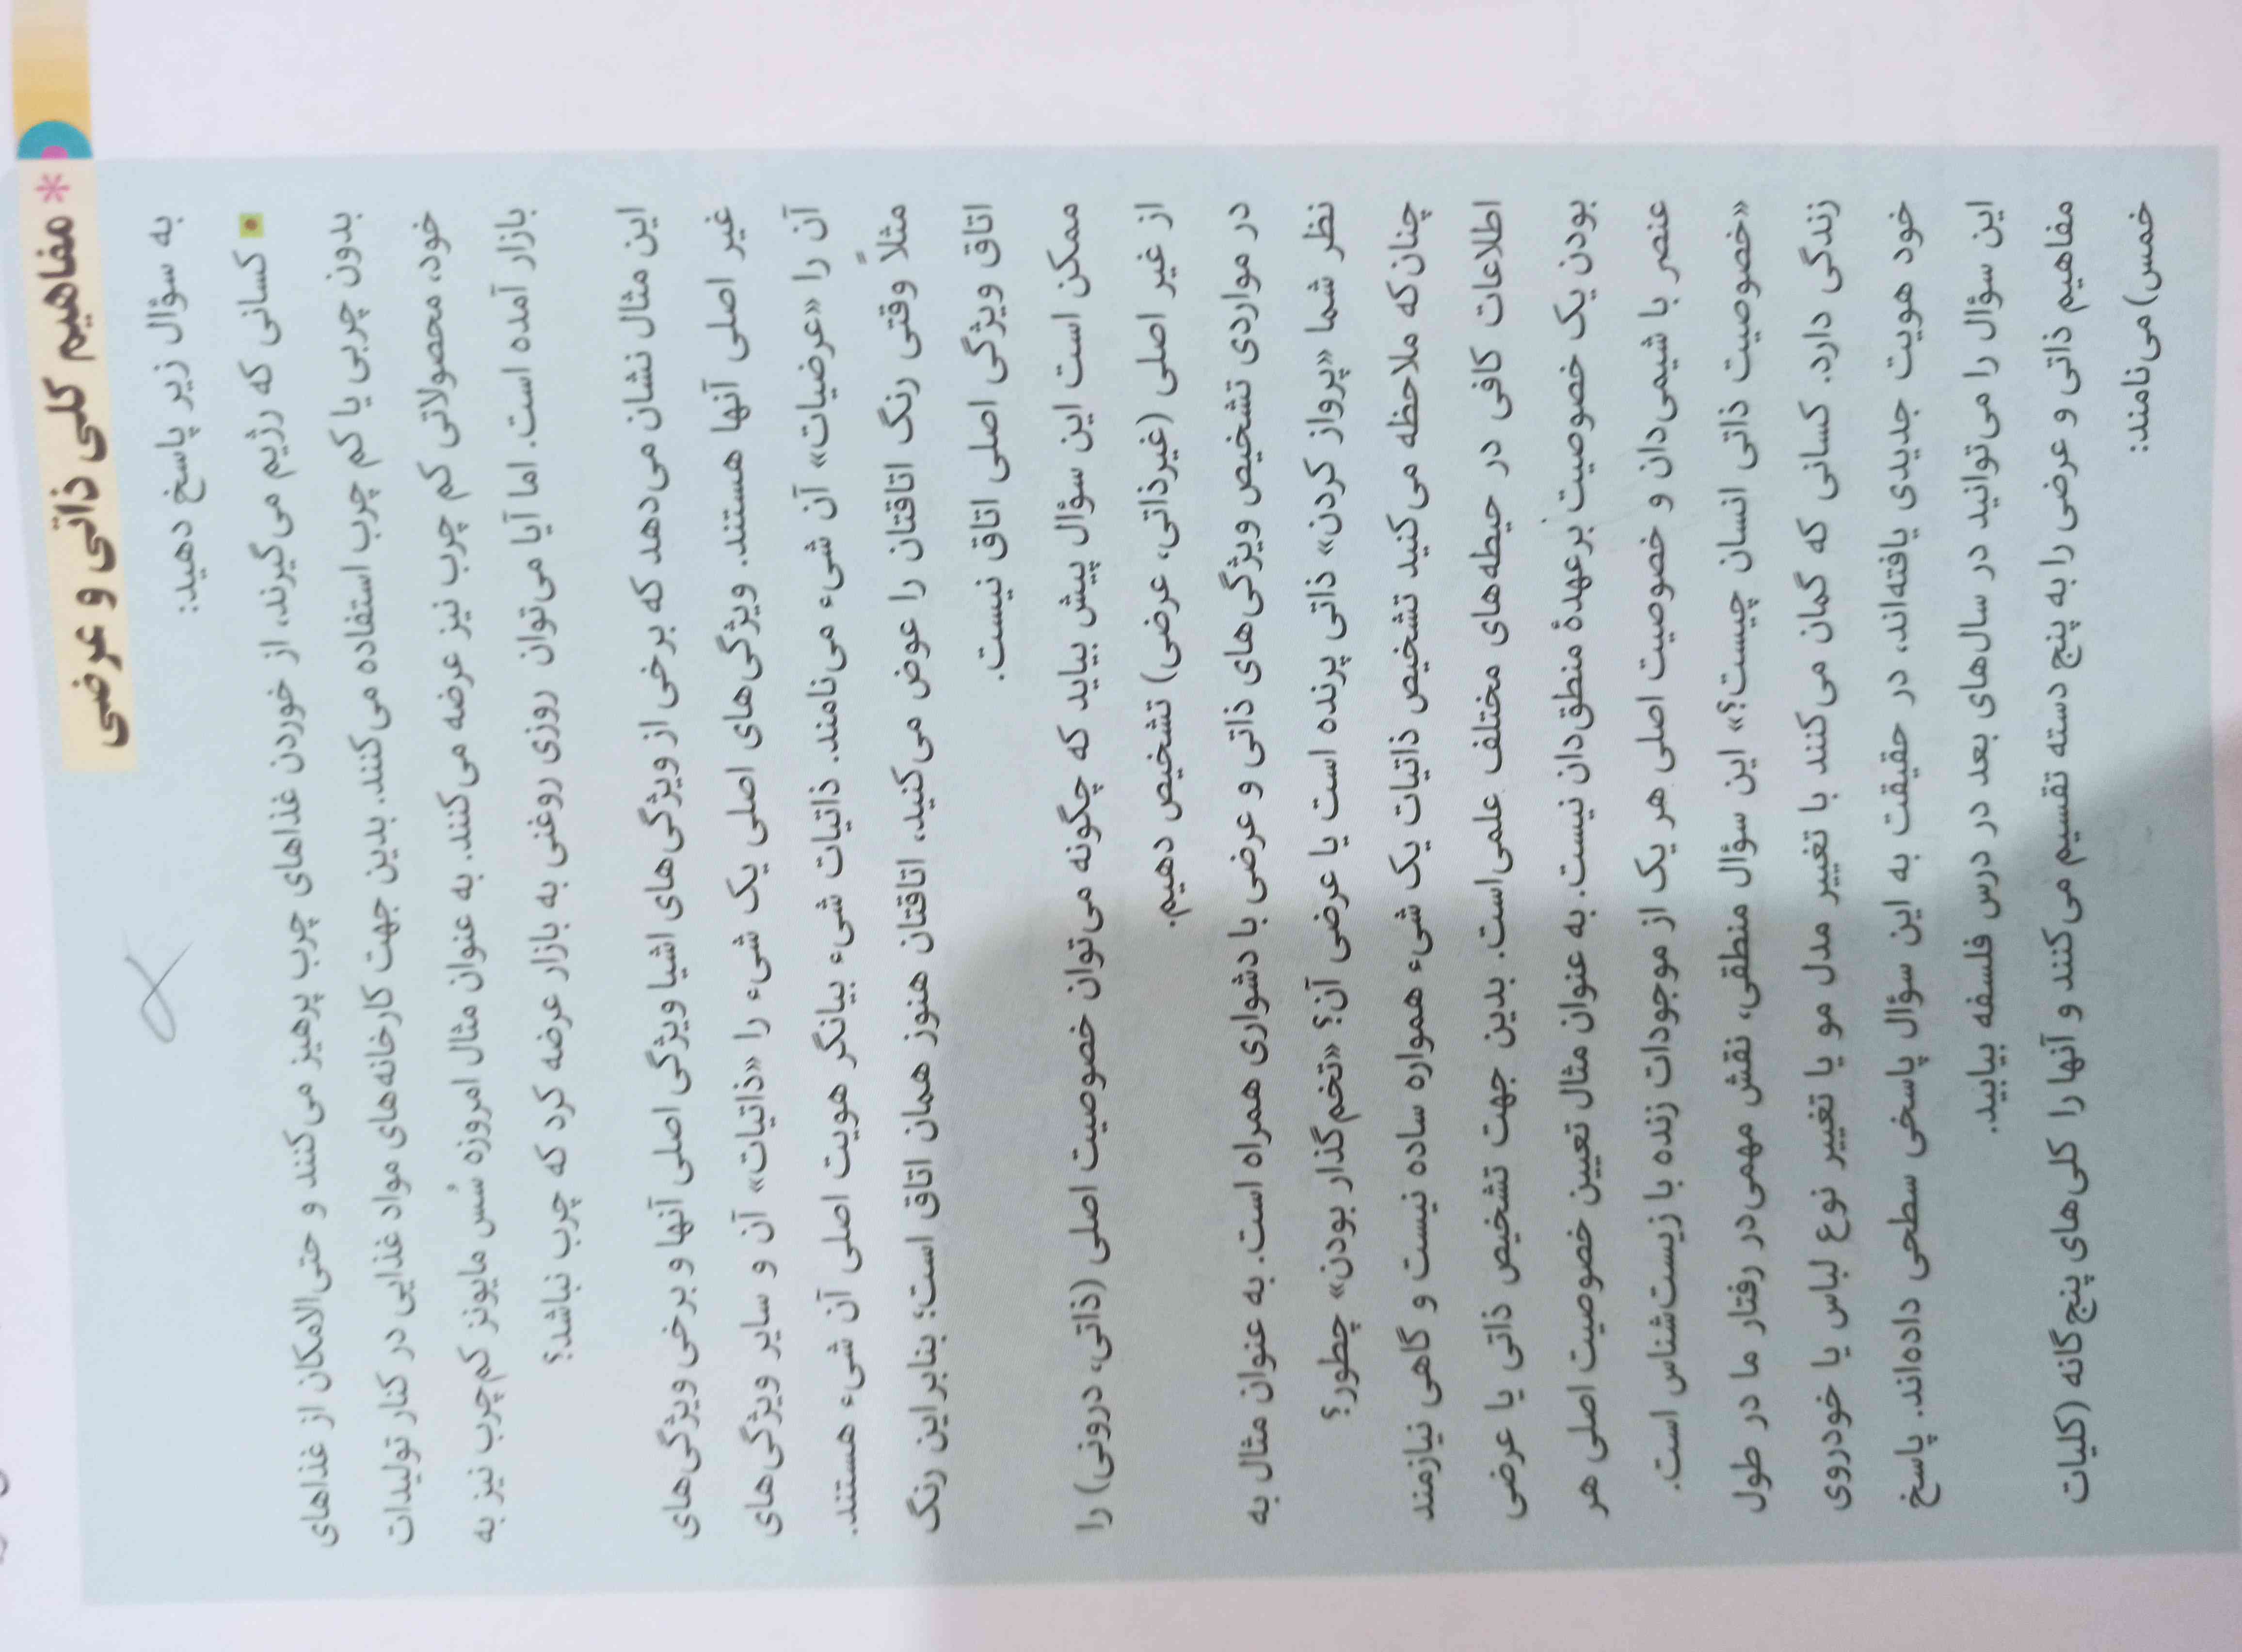 * مفاهیم کلی ذاتی و عرضی
به سؤال زیر پاسخ دهید:
کسانی که رژیم می‌گیرند، از خوردن غذاهای چرب پرهیز می‌کنند و حتی‌الامکان از غذاهای
بدون چربی یا کم چرب استفاده می‌کنند. بدین جهت کارخانه‌های مواد غذایی در کنار تولیدات
خود، محصولاتی کم چرب نیز عرضه می‌کنند. به عنوان مثال امروزه سُس مایونز کم‌چرب نیز به
بازار آمده است. اما آیا می‌توان روزی روغنی به بازار عرضه کرد که چرب نباشد؟
این مثال نشان می‌دهد که برخی از ویژگی‌های اشیا ویژگی اصلی آنها و برخی ویژگی‌های
غیر اصلی آنها هستند. ویژگی‌های اصلی یک شیء را «ذاتیات» آن و سایر ویژگی‌های
آن را «عرضیات» آن شیء می‌نامند. ذاتیات شیء بیانگر هویت اصلی آن شیء هستند.
مثلاً وقتی رنگ اتاقتان را عوض می‌کنید، اتاقتان هنوز همان اتاق است؛ بنابراین رنگ
اتاق ویژگی اصلی اتاق نیست.
ممکن است این سؤال پیش بیاید که چگونه می‌توان خصوصیت اصلی (ذاتی، درونی) را
از غیر اصلی (غیرذاتی، عرضی) تشخیص دهیم.
در مواردی تشخیص ویژگی‌های ذاتی و عرضی با دشواری همراه است. به عنوان مثال به
نظر شما «پرواز کردن» ذاتی پرنده است یا عرضی آن؟ «تخم‌گذار بودن» چطور؟
چنان‌که ملاحظه می‌کنید تشخیص ذاتیات یک شیء همواره ساده نیست و گاهی نیازمند
اطلاعات کافی در حیطه‌های مختلف علمی‌است. بدین جهت تشخیص ذاتی یا عرضی
بودن یک خصوصیت برعهدهٔ منطق‌دان نیست. به عنوان مثال تعیین خصوصیت اصلی هر
عنصر با شیمی‌دان و خصوصیت اصلی هر یک از موجودات زنده با زیست‌شناس است.
«خصوصیت ذاتی انسان چیست؟» این سؤال منطقی، نقش مهمی‌در رفتار ما در طول
زندگی دارد. کسانی که گمان می‌کنند با تغییر مدل مو یا تغییر نوع لباس یا خودروی
خود هویت جدیدی یافته‌اند، در حقیقت به این سؤال پاسخی سطحی داده‌اند. پاسخ
این سؤال را می‌توانید در سال‌های بعد در درس فلسفه بیابید.
مفاهیم ذاتی و عرضی را به پنج دسته تقسیم می‌کنند و آنها را کلی‌های پنج‌گانه (کلیات
خمس) می‌نامند: